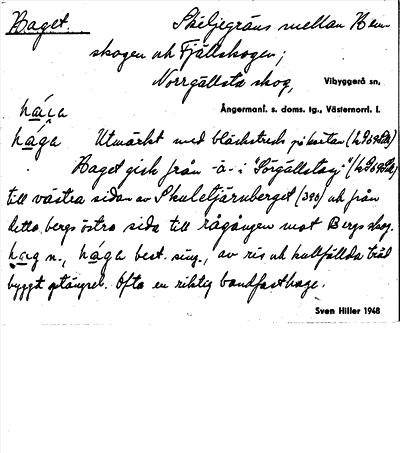 Haget. Skiljegräns mellan Hem-
skogen och Fjällskogen;
Norrgällsta skog, Vibyggerå sn,
Ångermanl. s. doms. tg., Västernorrl. l.
håga
håga Utmärkt med bläckstreck på kartan
Haget gick från -a- i "Sörgällstavj"
till västra sidan av Skuletjärnberget (390) och från
detta bergs östra sida till rågången mot Bergs skog.
hag n., håga best. sing., av ris och kullfällda träd
byggt stängsel. Ofta en riktig bandfasthage.
Sven Hiller 1948